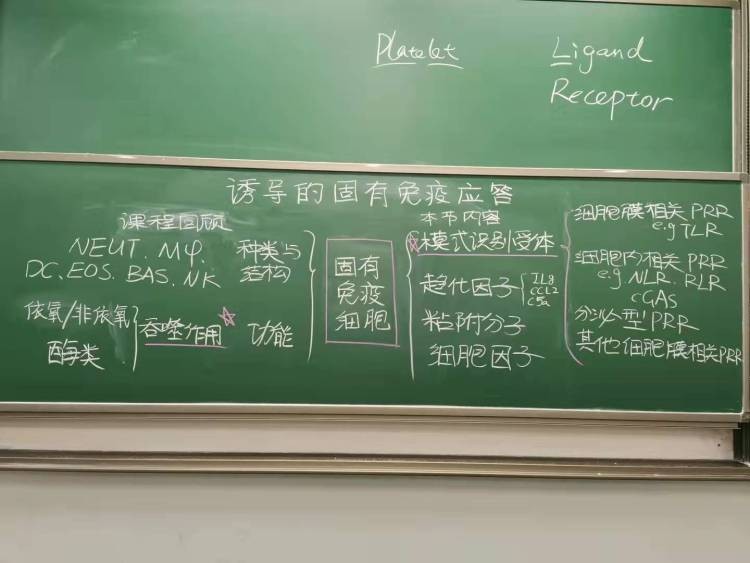 Platelet
Ligand
Receptor
诱导的固有免疫应答
课程回顾
NEUT. Mφ.
DC. EOS. BAS. NK
种类与
结构
依氧/非依氧
酶类
吞噬作用
功能
固有
免疫
细胞
本节内容
模式识别受体
趋化因子
IL8
CCL2
C5a
粘附分子
细胞因子
细胞膜相关PRR
e.g TLR
细胞内相关PRR
e.g NLR. RLR
cGAS
分泌型PRR
其他细胞膜相关PRR